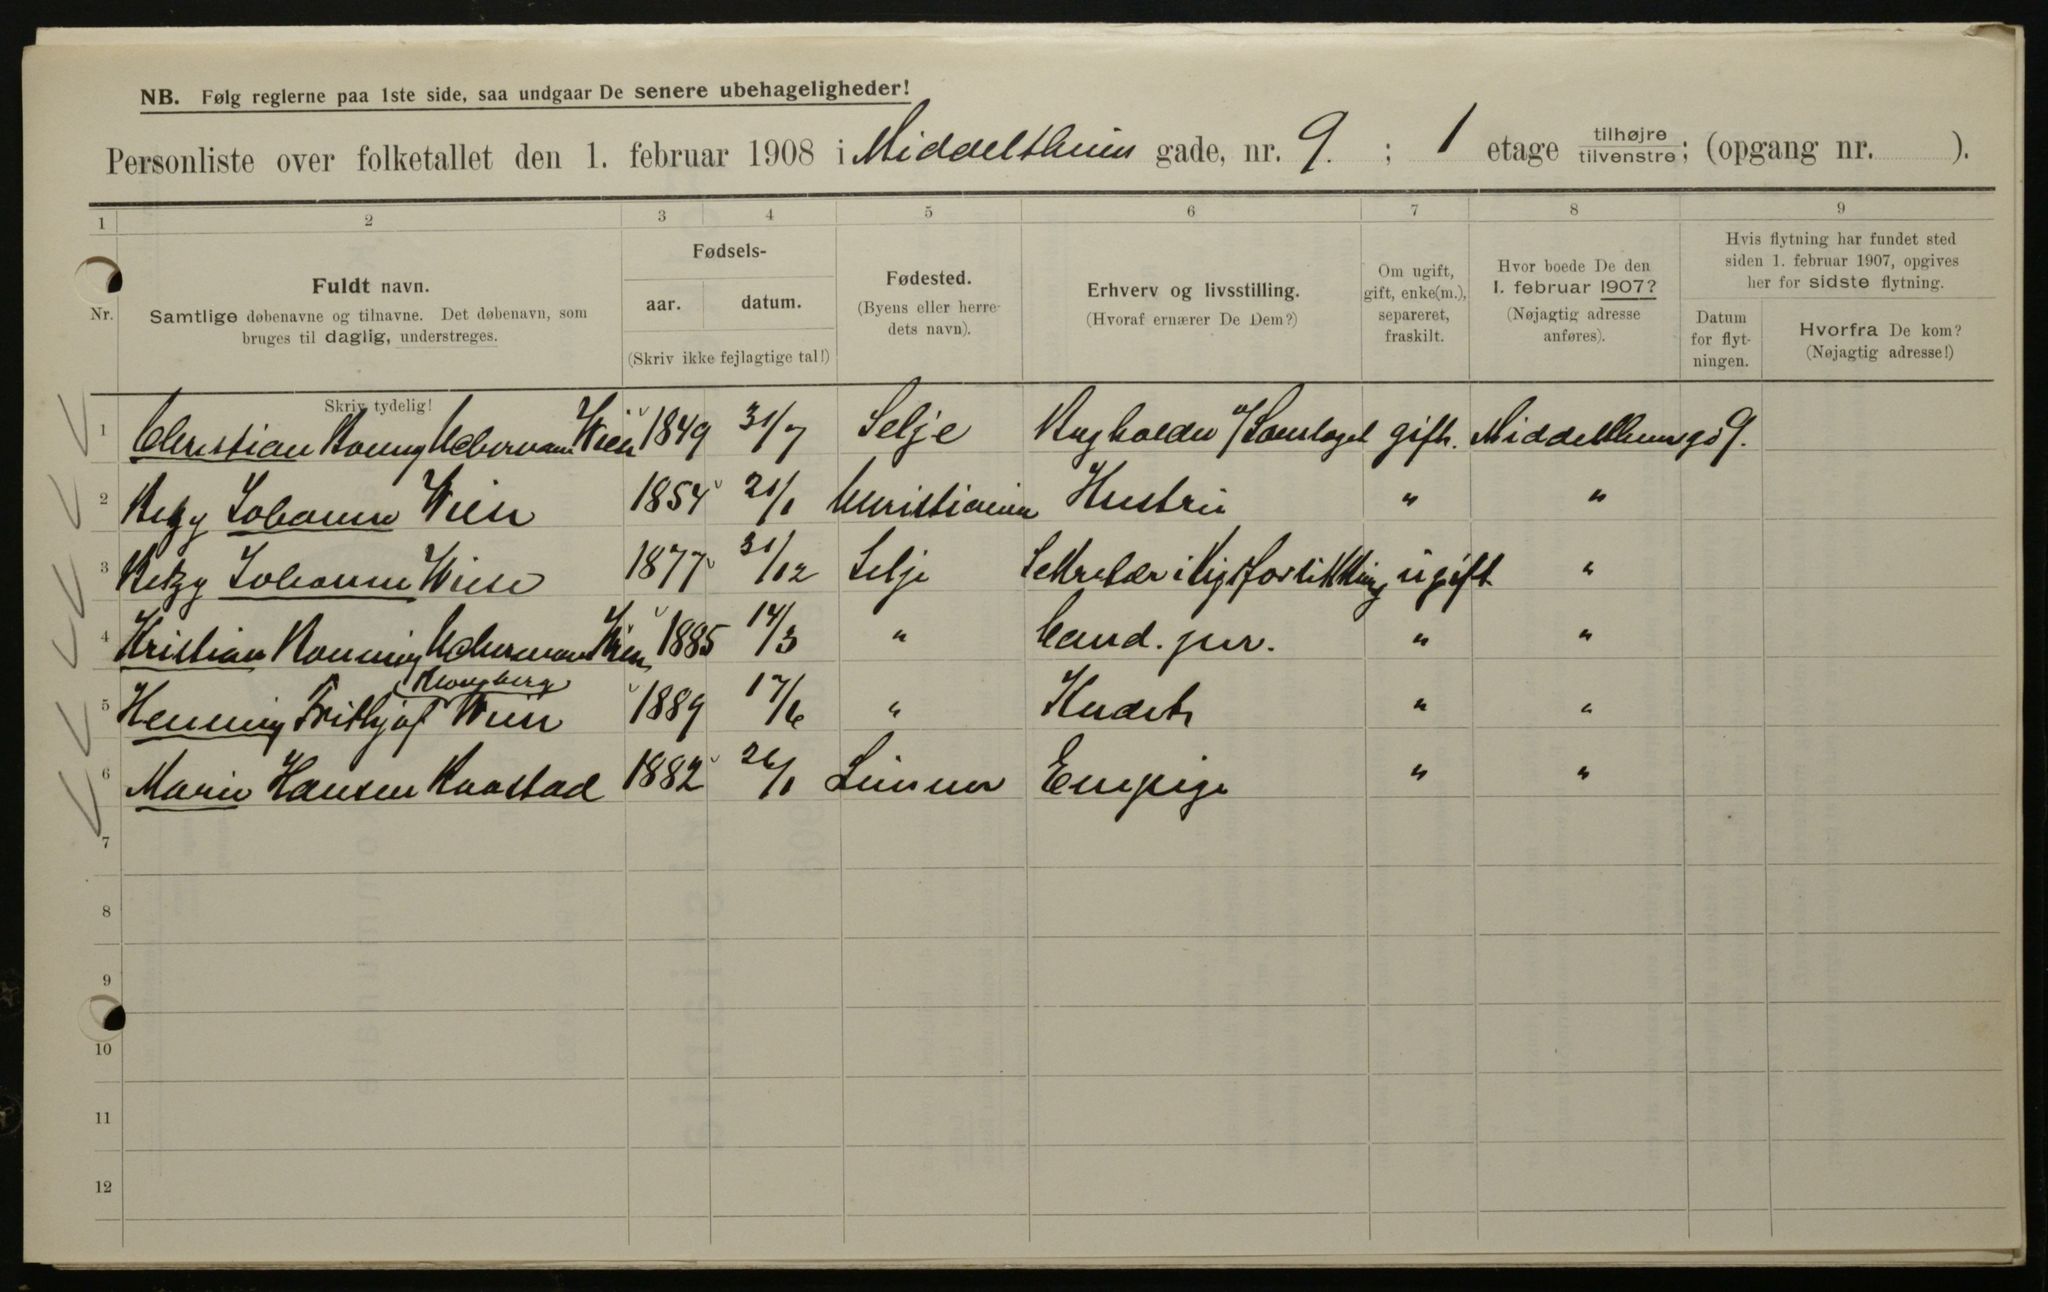 NB. Følg reglerne paa 1ste side, saa undgaar De senere ubehageligheder!
Personliste over folketallet den 1. februar 1908 i Middelthuns gade, nr. 9. ; 1 etage tilhøjre tilvenstre; (opgang nr. ).
1 2 3 4 5 6 7 8 9
Nr.
Fuldt navn.
Samtlige døbenavne og tilnavne. Det døbenavn, som
bruges til daglig, understreges.
Skriv tydelig!
Fødsels-
aar. datum.
(Skriv ikke fejlagtige tal!)
Fødested.
(Byens eller herre-
dets navn).
Erhverv og livsstilling.
(Hvoraf ernærer De Dem?)
Om ugift,
gift, enke(m.),
separeret,
fraskilt.
Hvor boede De den
1. februar 1907?
(Nøjagtig adresse
anføres).
Hvis flytning har fundet sted
siden 1. februar 1907, opgives
her for sidste flytning.
Datum
for flyt-
ningen.
Hvorfra De kom?
(Nøjagtig adresse!)
1 Christian Wiese 1849 31/7 Selje gift. Middelthunsgd 9.
2 Betzy Johanne Wiese 1854 21/1 Christiania Hustru " "
3 Betzy Johanne Wiese 1877 31/12 Selje ugift "
4 Kristian Wiese 1885 14/3 " Cand. jur. " "
5 Henning Frithjof Wiese 1889 17/6 " Kadet " "
6 Marie Hansen Kaastad 1882 26/1 Enepige " "
7
8
9
10
11
12